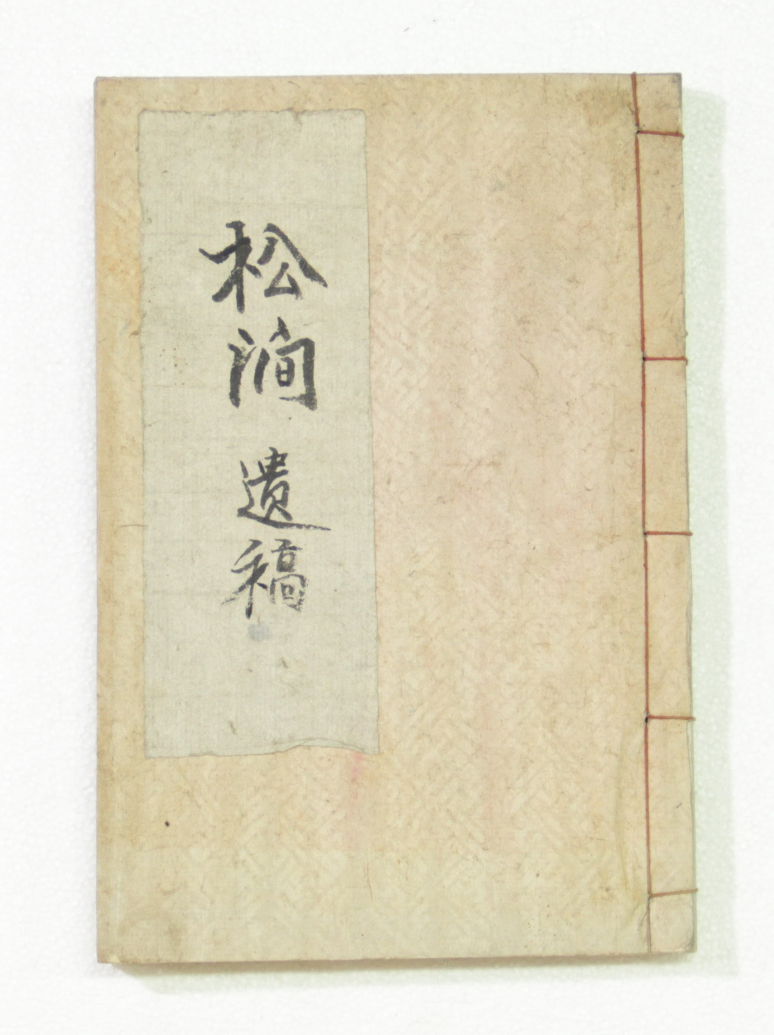 松澗遺稿